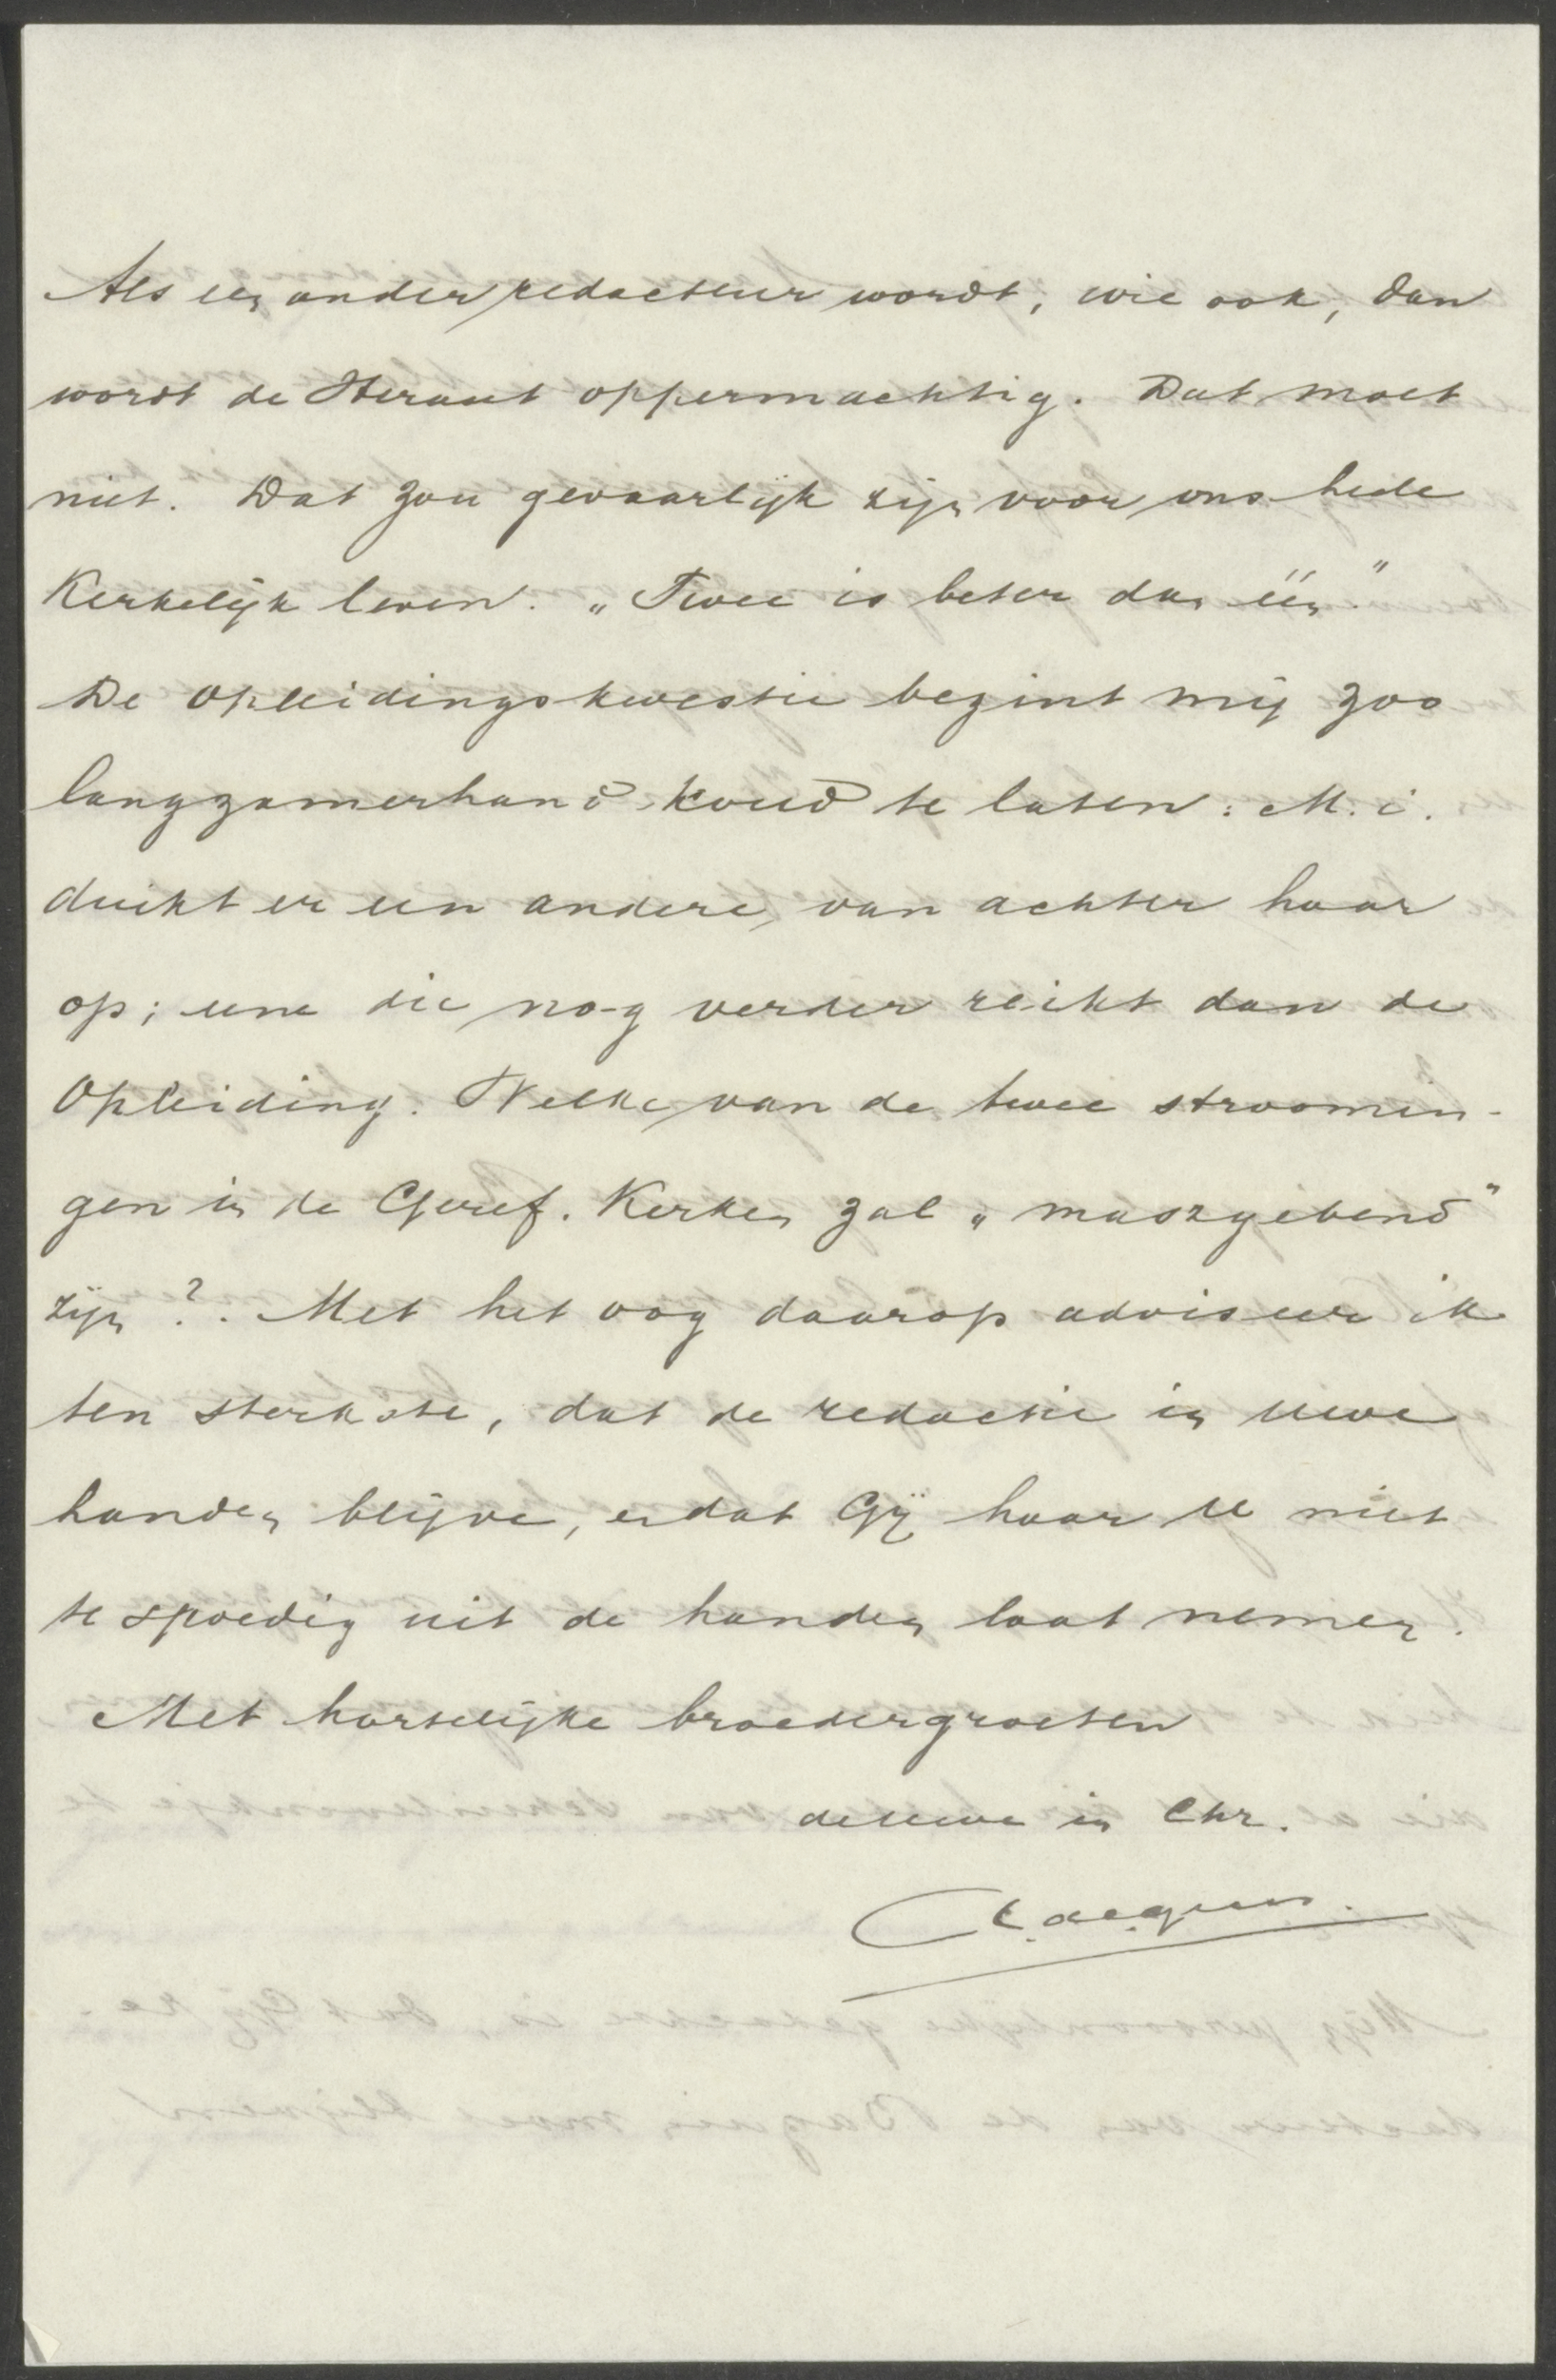 Als een ander redacteur wordt, wie ook, dan
wordt de Heraut oppermachtig. Dat moet
niet. Dat zou gevaarlijk zijn voor ons hede
Kerkelijk leven. „Twee is beter dan één."
De Opleidingskwestie begint mij zoo
langzamerhand koud te laten: M.i.
duikt er een andere van achter haar
op; eene die nog verder reikt dan de
Opleiding. Welke van de twee stroomin-
gen in de Geref. Kerken zal „maszgebend"
zijn?. Met het oog daarop adviseere ik
ten sterkste, dat de redactie in uwe
handen blijve, en dat Gij haar U niet
te spoedig uit de handen laat nemen.
Met hartelijke broedergroeten
de uwe in Chr.